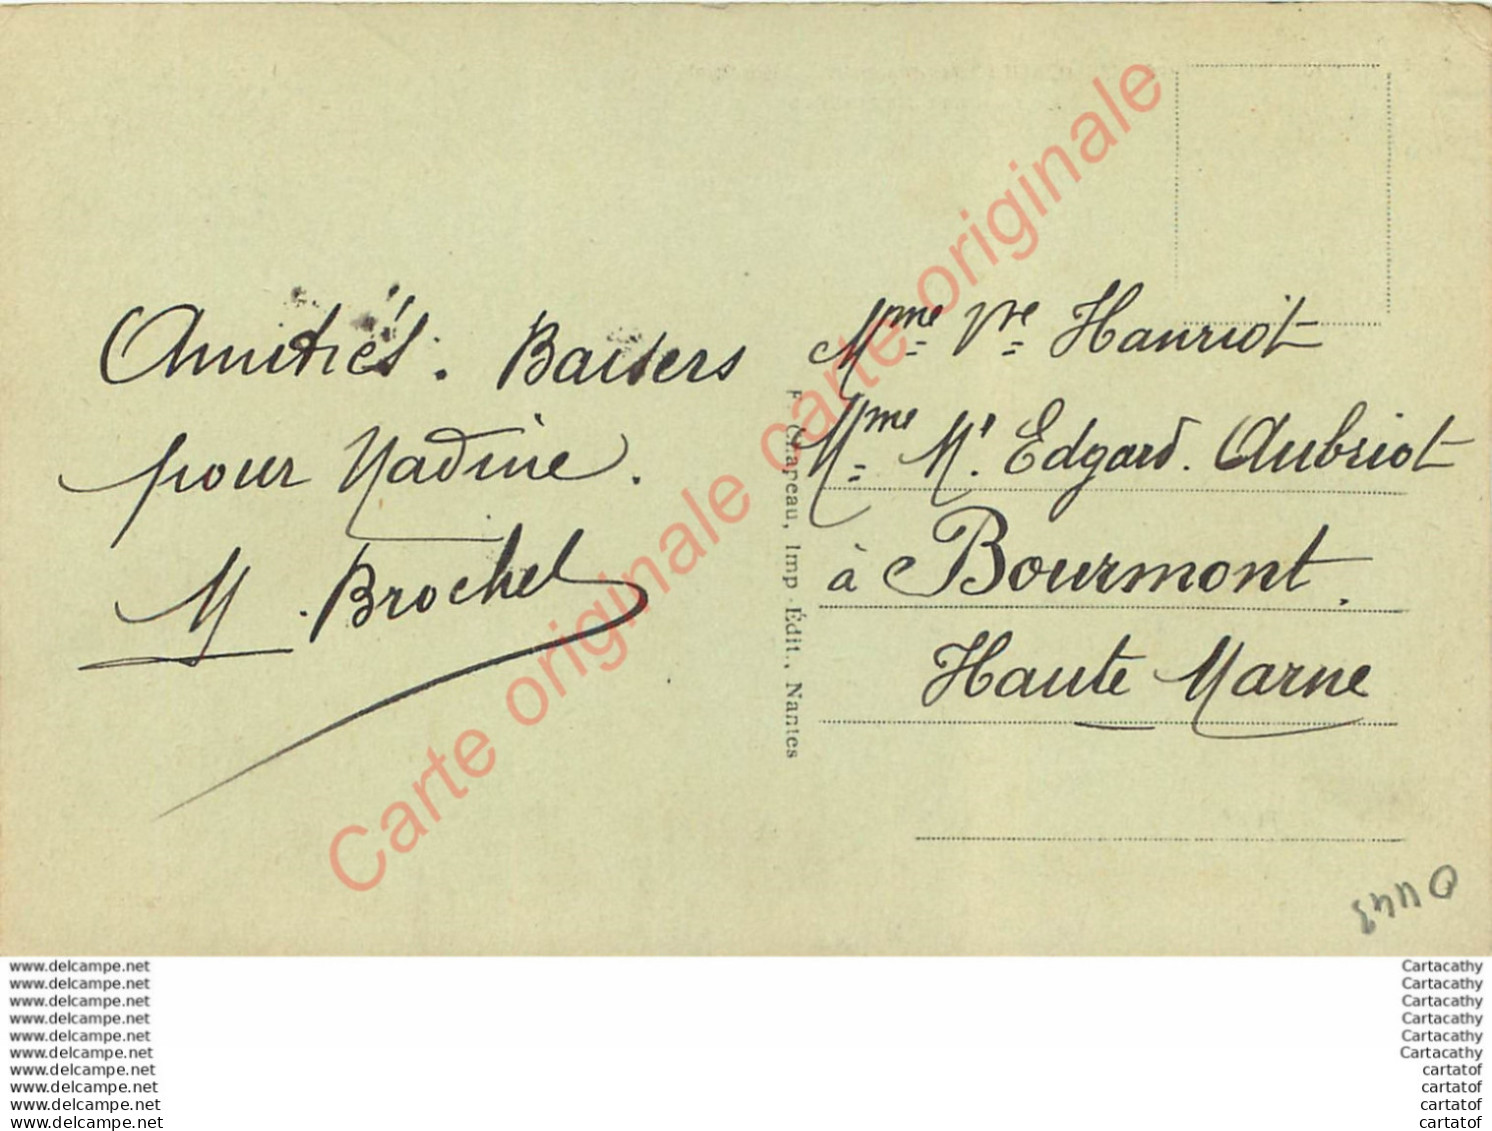 Amitiés. Baisers
pour Nadine.
M. Brochet
F. Chapeau, Imp.-Édit., Nantes
Mme Vve Hanriot
Mme Mr. Edgard. Aubriot
à Bourmont.
Haute Marne
Carte originale carte originale carte originale
www.delcampe.net
www.delcampe.net
www.delcampe.net
www.delcampe.net
www.delcampe.net
www.delcampe.net
www.delcampe.net
www.delcampe.net
www.delcampe.net
www.delcampe.net
Cartacathy
Cartacathy
Cartacathy
Cartacathy
Cartacathy
Cartacathy
cartatof
cartatof
cartatof
cartatof